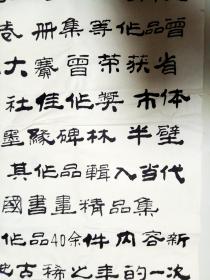 册集等作品曾
大赛曾荣获省
社佳作奖市体
墨缘碑林半壁
其作品辑入当代
國書畫精品集
作品40余件内容新
古稀之年的一次